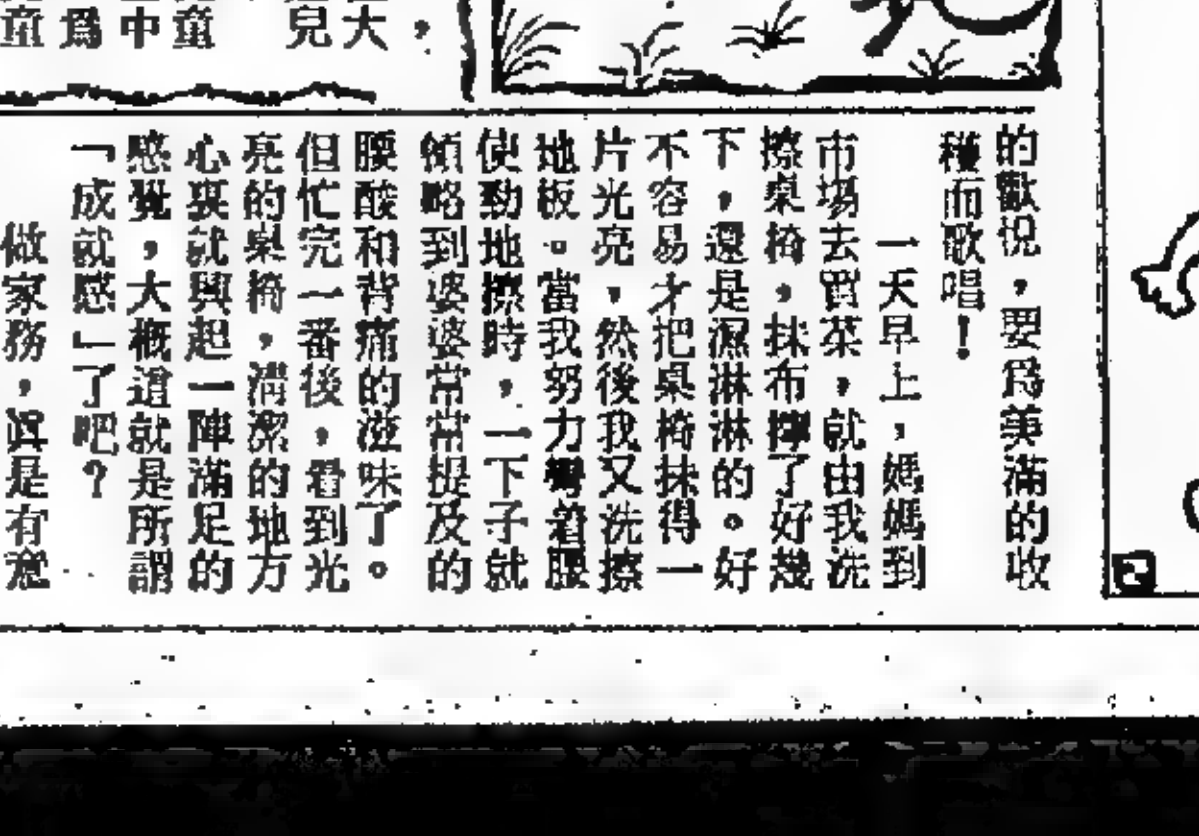 大，
兒
童
中
爲
童
的歡悅，要爲美滿的收
穫而歌唱！
一天早上，媽媽到
市場去買菜，就由我洗
擦桌椅，抹布擰了好幾
下，還是濕淋淋的。好
不容易才把桌椅抹得一
片光亮，然後我又洗擦
地板。當我努力彎着腰
使勁地擦時，一下子就
領略到婆婆常常提及的
腰酸和背痛的滋味了。
但忙完一番後，看到光
亮的桌椅，清潔的地方
心裏就興起一陣滿足的
感覺，大概這就是所謂
「成就感」了吧？
做家務，眞是有意